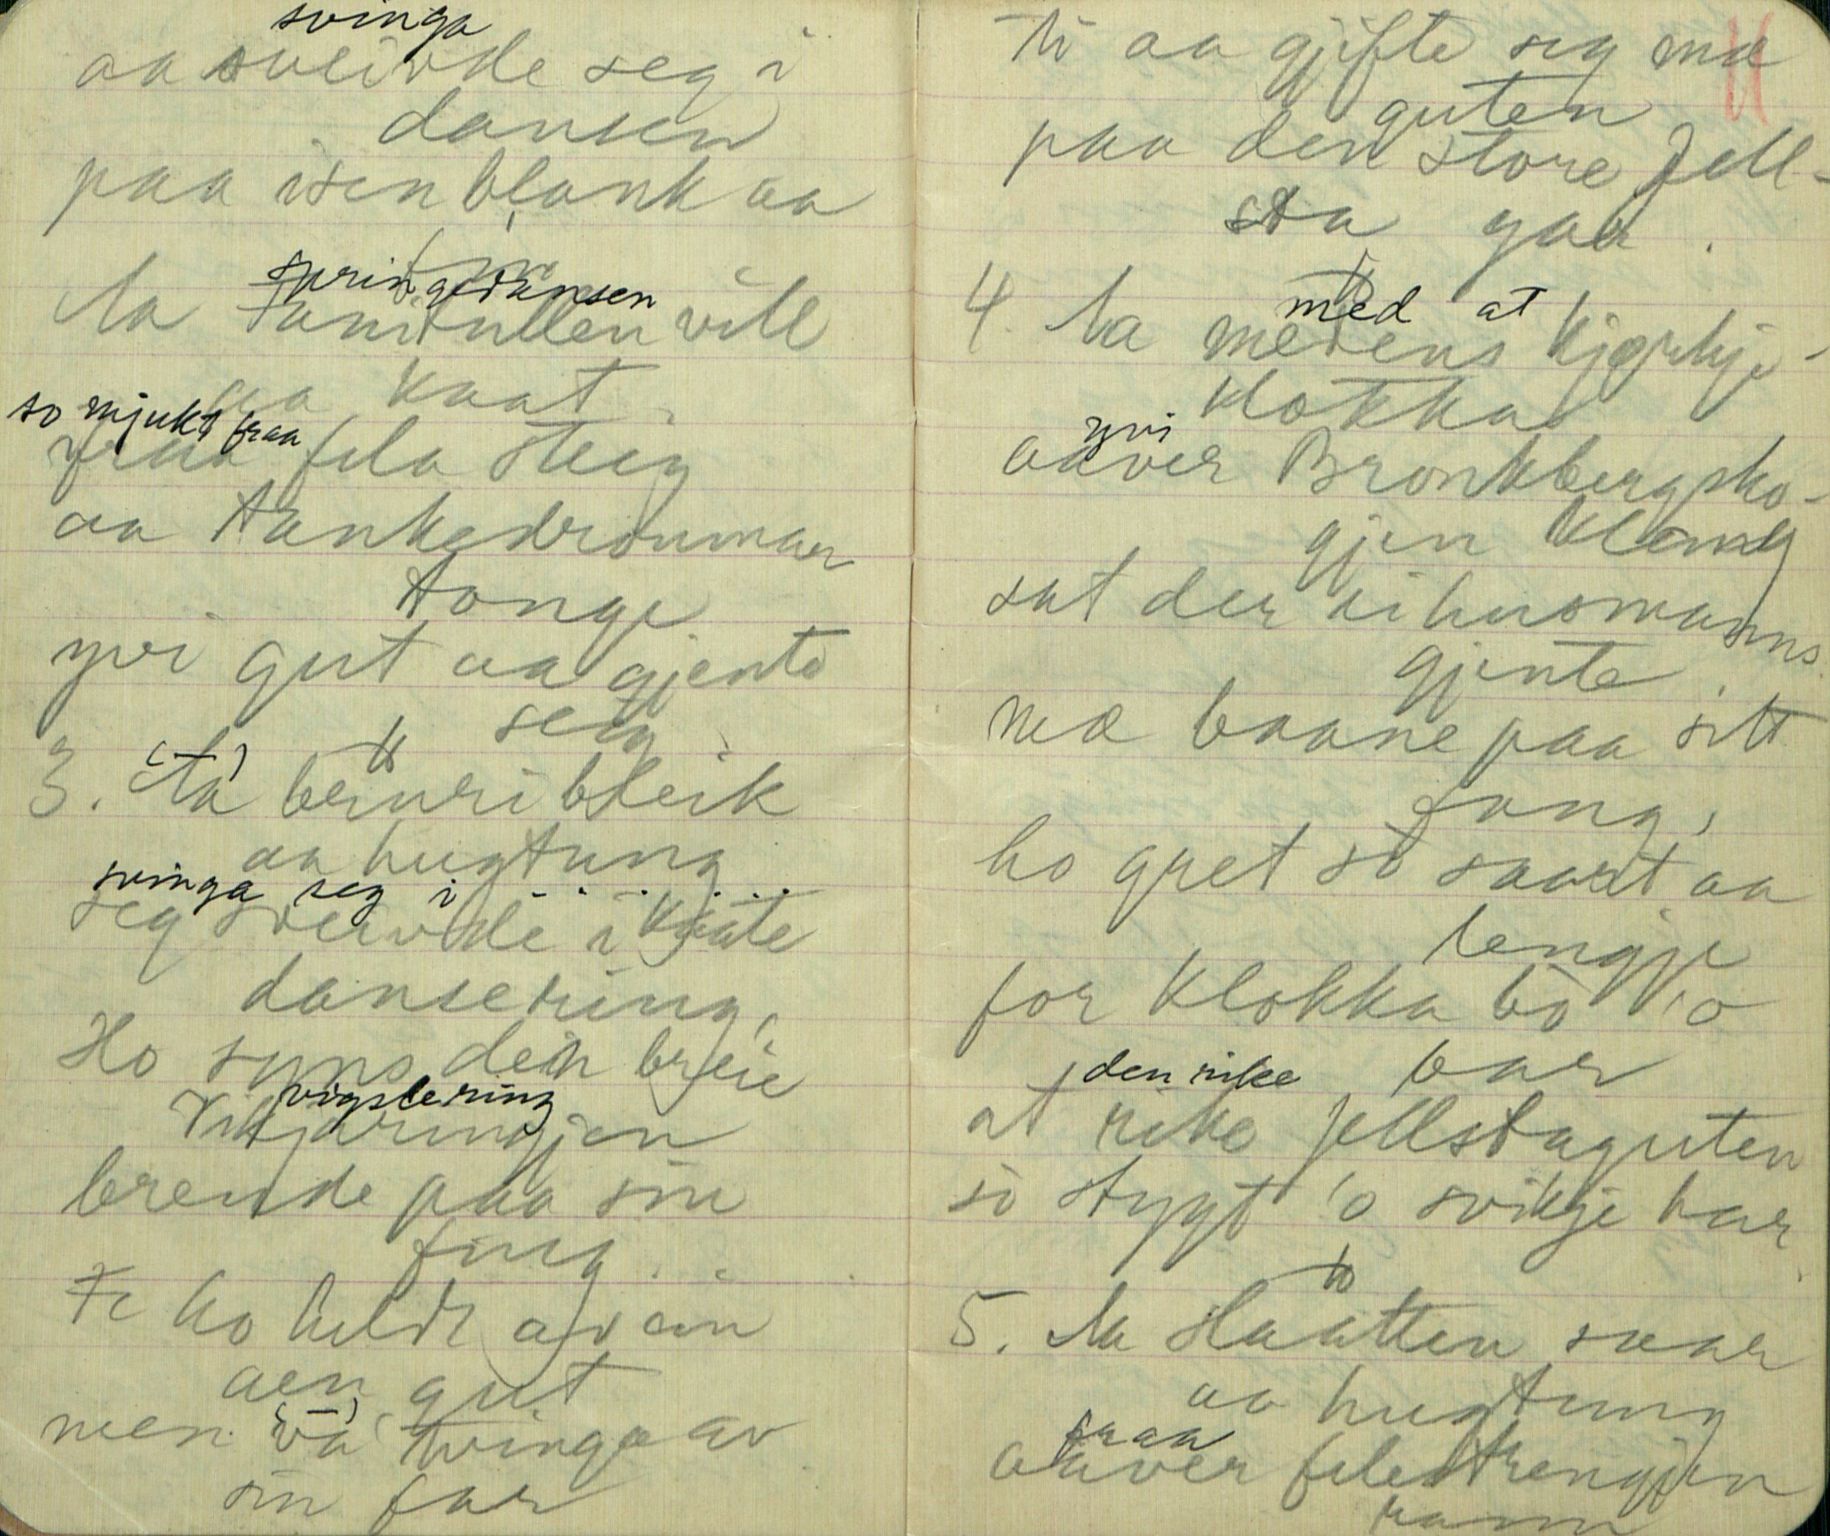 svinga
aa sveivde seg i
dansen
paa isen blank aa
springedansen
Aa Fanitullen vill
aa kaat,
so mjukt fraa
fraa fela steig
aa tankedrønmaer
tonge
yvi gut aa gjente
seig.
3. (Aa) bruri bleik
aa hugtung
svinga seg i . . . . . .
seg sveivde i kaate
dansering,
Ho syns den breie
vigslering
brende paa sin
fing.
Fe ho heldt av ein
aen gut
men (va) tvinga av
sin far
ti aa gjifte seg mæ
guten
paa den store Jell-
sta gar.
4. Aa med at
medens kjørkje-
klokka
yvi
aaver Bronkbergsko-
gjen klang
sat der ei husmanns
gjente
mæ baane paa sitt
fang,
ho gret so saart aa
lengje
for klokka bo 'o
bar
den rike
at rike Jellstaguten
so stygt 'o svikje har
5. Aa slaatten svaar
aa hugtung
fraa
aaver felestrengjen
rann